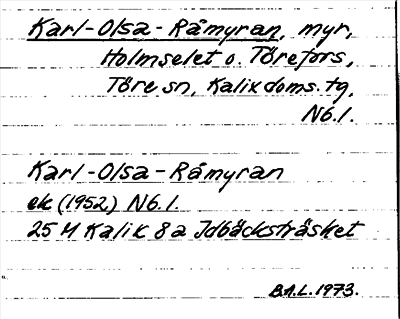 Karl-Olsa-Råmyran, myr,
Holmselet o. Törefors,
Töre sn, Kalix doms. tg,
Nb.l.
Karl-Olsa-Råmyran
ek (1952) Nb.l.
25 M Kalix 8a Idbäcksträsket
B.A.L. 1973.